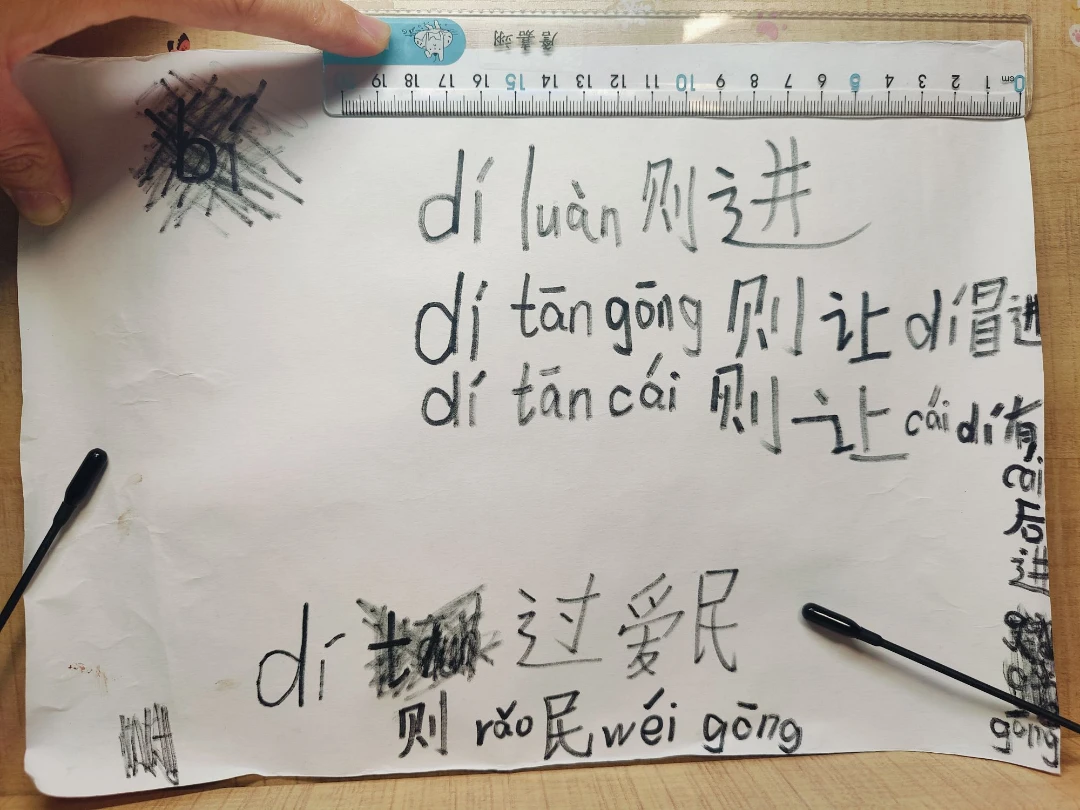 唐嘉翊
0 1 2 3 4 5 6 7 8 9 10 11 12 13 14 15 16 17 18 19
cm
bì
dí luàn 则进
dí tān gōng 则让 dí冒进
dí tān cái 则让 cái dí有
cái
后
进
dí 过爱民
则 rǎo 民 wéi gōng
gōng